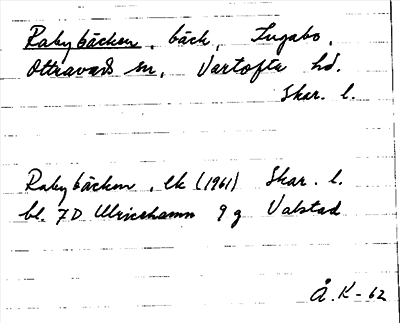 Rabybäcken, bäck, Tugabo,
Ottravads sn, Vartofta hd.
Skar. l.
Rabybäcken, ek (1961) Skar. l.
bl. 7D Ulricehamn 9 g Valstad
Å.K-62